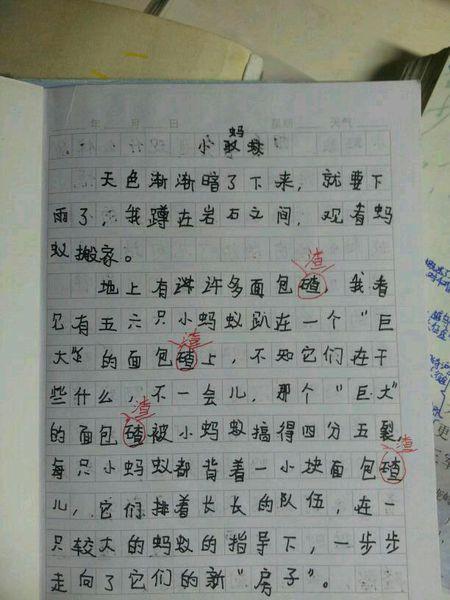 年 月 日 星期 天气
小蚂蚁
天色渐渐暗了下来，就要下
雨了，我蹲在岩石之间，观看蚂
蚁搬家。
渣
地上有许多面包碴 我看
见有五六只小蚂蚁趴在一个“巨
渣
大”的面包碴上，不知它们在干
些什么，不一会儿，那个“巨大”
渣
的面包碴被小蚂蚁搞得四分五裂
渣
每只小蚂蚁都背着一小块面包碴
儿，它们排着长长的队伍，在一
只较大的蚂蚁的指导下，一步步
走向了它们的新“房子”。